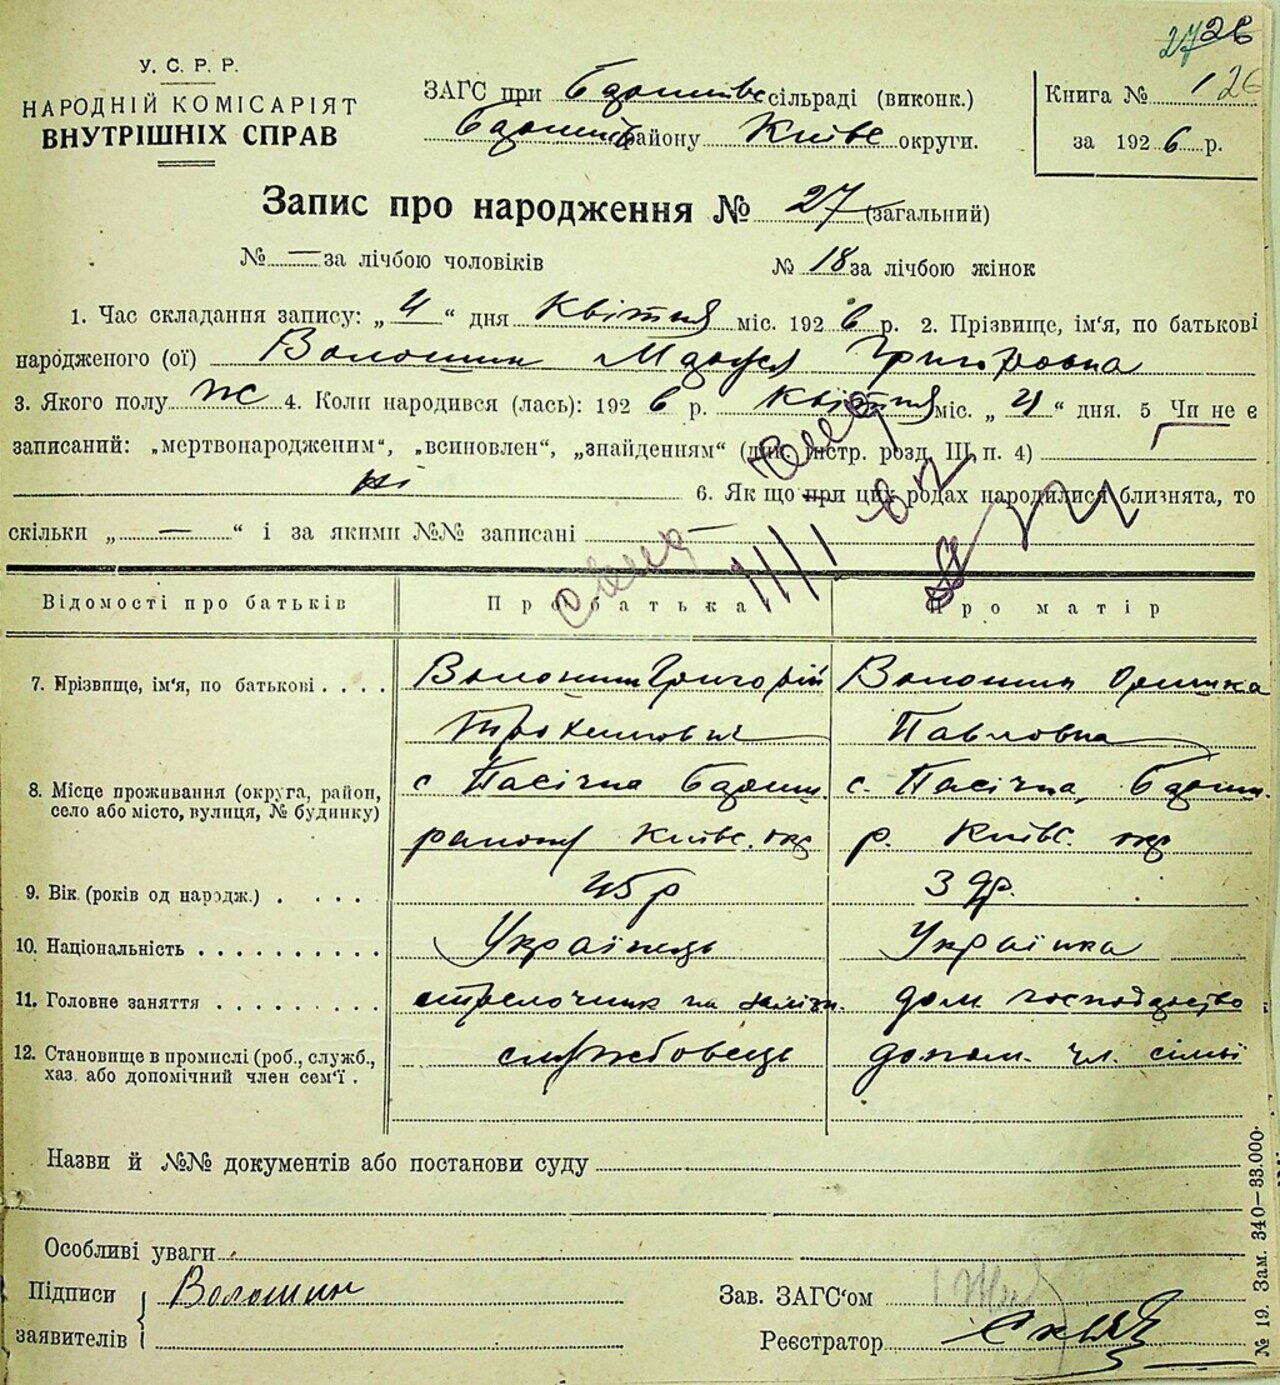 27 26
У. С. Р. Р.
НАРОДНІЙ КОМІСАРІЯТ
ВНУТРІШНІХ СПРАВ
ЗАГС при сільраді (виконк.)
району Київс округи.
Книга № 1 26
за 192 6 р.
Запис про народження № 27 (загальний)
№ — за лічбою чоловіків № 18 за лічбою жінок
1. Час складання запису: „ “ дня Квітня міс. 192 6 р. 2. Прізвище, ім‘я, по батькові
народженого (ої) Волошин Григоровна
3. Якого полу ж 4. Коли народився (лась): 192 6 р. квітня міс. „ “ дня. 5 Чи не є
записаний: „мертвонародженим“, „всиновлен“, „знайденням“ (див. інстр. розд. III п. 4)
ні 6. Як що при цих родах народилися близнята, то
скільки „ — “ і за якими №№ записані
Відомості про батьків Про батька Про матір
7. Прізвище, ім‘я, по батькові . . . . Волошин Григорій Волошин Оришка
Павловна
8. Місце проживання (округа, район, с Пасічна с. Пасічна,
село або місто, вулиця, № будинку)
району Київс. окр р. Київс. окр
9. Вік (років од народж.) . . . . . 45 р
10. Національність . . . . . . . . . . Українець Українка
11. Головне заняття . . . . . . . . . стрелочник на дом господарство
12. Становище в промислі (роб., служб., службовець допом. чл. сімьі
хаз. або допомічний член сем‘ї .
Назви й №№ документів або постанови суду
Особливі уваги
Підписи Волошин Зав. ЗАГС‘ом
заявителів Реєстратор
№ 19. Зам. 340—33.000.